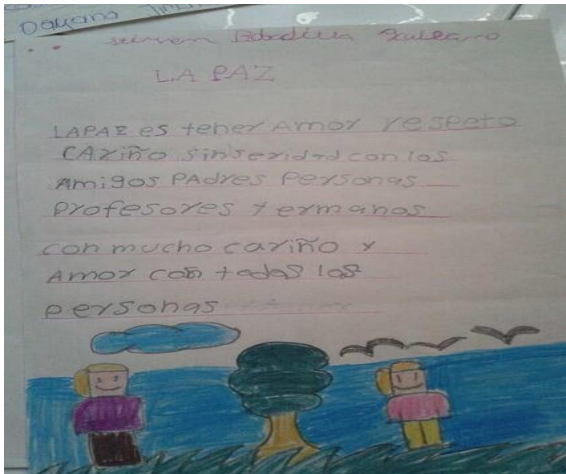 Dayana
Bobadilla
LA PAZ
LAPAZ es tener Amor respeto
CAriño sinseridad con los
Amigos PAdres Personas
Profesores y ermanos
con mucho cariño y
Amor con todas las
personas